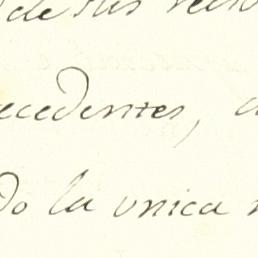 de sus
ecedentes,
do la unica